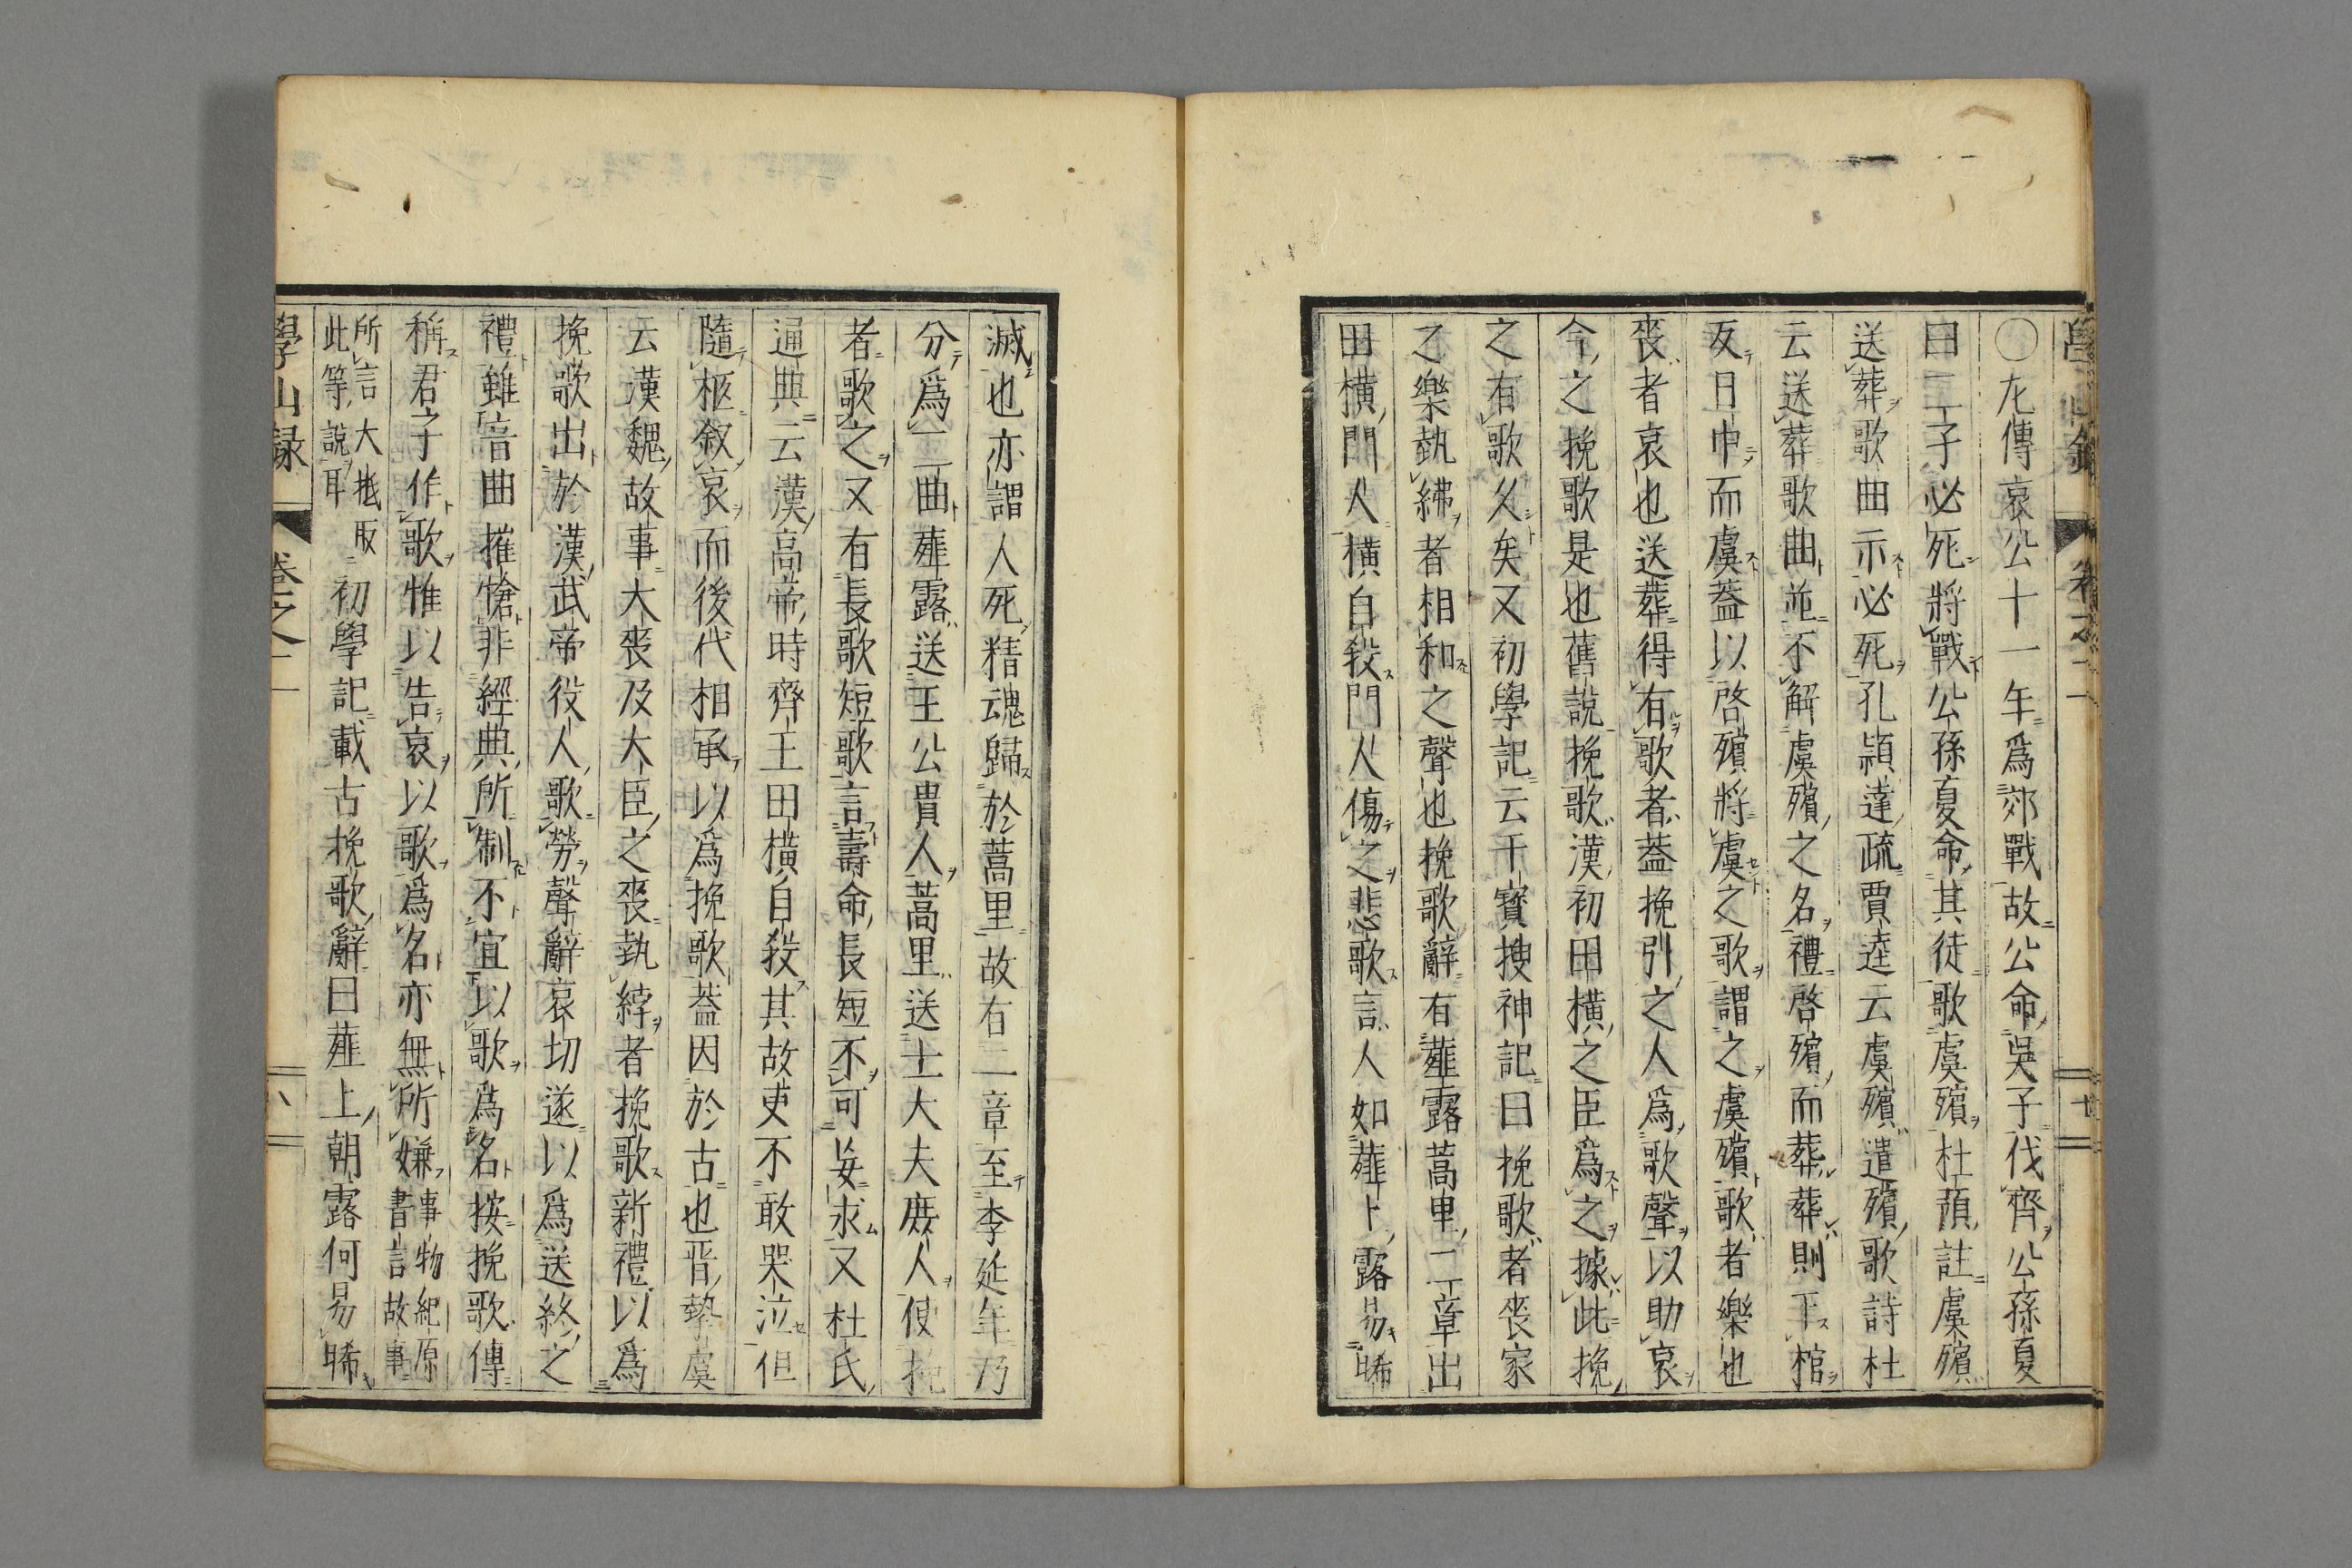 〇左傳哀公十一年爲郊戰故公命吳子伐齊公孫夏
曰二子必死將戰公孫夏命其徒歌虞殯杜預註虞殯
送葬歌曲示必死孔頴達疏賈逵云虞殯遣殯歌詩杜
云送葬歌曲並不解虞殯之名禮啓殯而葬葬則下棺
反日中而虞葢以啓殯將虞之歌謂之虞殯歌者樂也
喪者哀也送葬得有歌者葢挽引之人爲歌聲以助哀
今之挽歌是也舊說挽歌漢初田橫之臣爲之據此挽
之有歌久矣又初學記云干寳搜神記曰挽歌者喪家
之樂執紼者相和之聲也挽歌辭有薤露蒿里二章出
田橫門人橫自殺門人傷之悲歌言人如薤上露易晞
滅也亦謂人死精魂歸於蒿里故有二章至李延年乃
分爲二曲薤露送王公貴人蒿里送士大夫庶人使挽
者歌之又有長歌短歌言壽命長短不可妄求又杜氏
通典云漢高帝時齊王田橫自殺其故吏不敢哭泣但
隨柩叙哀而後代相承以爲挽歌葢因於古也晋摯虞
云漢魏故事大喪及大臣之喪執綍者挽歌新禮以爲
挽歌出於漢武帝役人歌勞聲辭哀切遂以爲送終之
禮雖音曲摧愴非經典所制不宜以歌爲名按挽歌傳
稱君子作歌惟以告哀以歌爲名亦無所嫌事物紀原書言故事
所言大抵取此等說耳初學記載古挽歌辭曰薤上朝露何易晞
學山録
卷之二